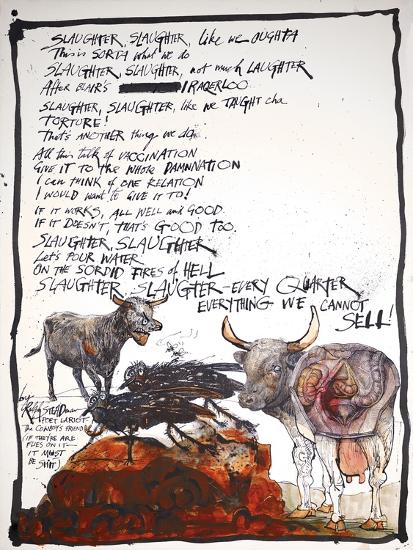 SLAUGHTER, SLAUGHTER, like we OUGHTA
This is SORTA what we do
SLAUGHTER, SLAUGHTER, not much LAUGHTER
AFTER BLAIR'S IRAQERLOO
SLAUGHTER, SLAUGHTER, like we TAUGHT cha
TORTURE!
That's ANOTHER thing we do.
All this talk of VACCINATION
GIVE IT to the whole DAMNNATION
I can THINK of ONE RELATION
I WOULD want to GIVE it TO!
IF IT WORKS, ALL WELL and GOOD
IF IT DOESN'T, THAT'S GOOD TOO.
SLAUGHTER, SLAUGHTER
LET'S POUR WATER
ON THE SORDID FIRES of HELL
SLAUGHTER, SLAUGTER-EVERY QUARTER
EVERYTHING WE CANNOT
SELL!
by
Ralph STEADman
POET LARIOT
The COWBOYS FRIEND
(IF THEY'RE ARE
FLIES ON IT-
IT MUST
BE SHIT)